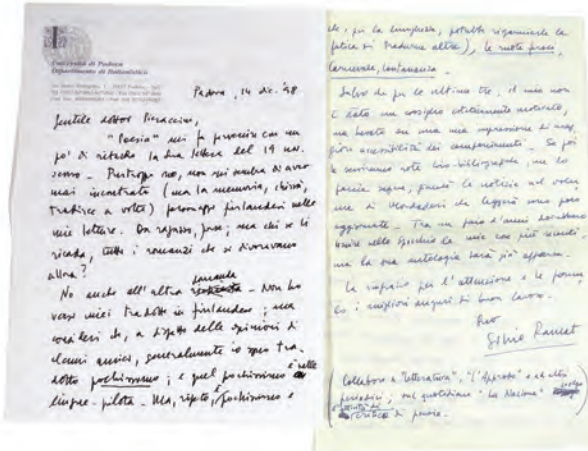 Università di Padova
Dipartimento di Italianistica
Padova, 14 dic. '98
Gentile dottor
"Poesia" mi fa pervenire con un
po' di ritardo la Sua lettera del 19 nov.
scorso. Purtroppo no, non mi sembra di aver
mai incontrato (ma la memoria, chissà,
tradisce a volte) personaggi finlandesi nelle
mie letture. Da ragazzo, forse; ma chi se li
ricorda, tutti i romanzi che si divoravano
allora?
No anche all'altra domanda. Non ho
versi miei tradotti in finlandese; ma
consideri che, a dispetto delle opinioni di
alcuni amici, generalmente io sono tra-
dotto pochissimo; e quel pochissimo è nelle
lingue-pilota. Ma, ripeto, è pochissimo e
che, per la lunghezza, potrebbe risparmiarle la
fatica di tradurne altre), le ruote
Carnevale, Lontananza.
Salvo che per le ultime tre, il mio non
è stato un consiglio
ma basato su una mia impressione di mag-
gior accessibilità dei componimenti. Se poi
le servissero note bio-bibliografiche, me lo
faccia sapere, perché le notizie sul volu-
me di Mondadori che leggerà sono poco
aggiornate. Tra un paio d'anni dovrebbero
uscire nello Specchio le mie cose più recenti.
ma la sua antologia sarà già apparsa.
La ringrazio per l'attenzione e Le formu-
lo i migliori auguri di buon lavoro.
Suo
Silvio Ramat
(Collaboro a "Letteratura", "L'Approdo" e ad altri
periodici; sul quotidiano "La Nazione"
critica di poesia.